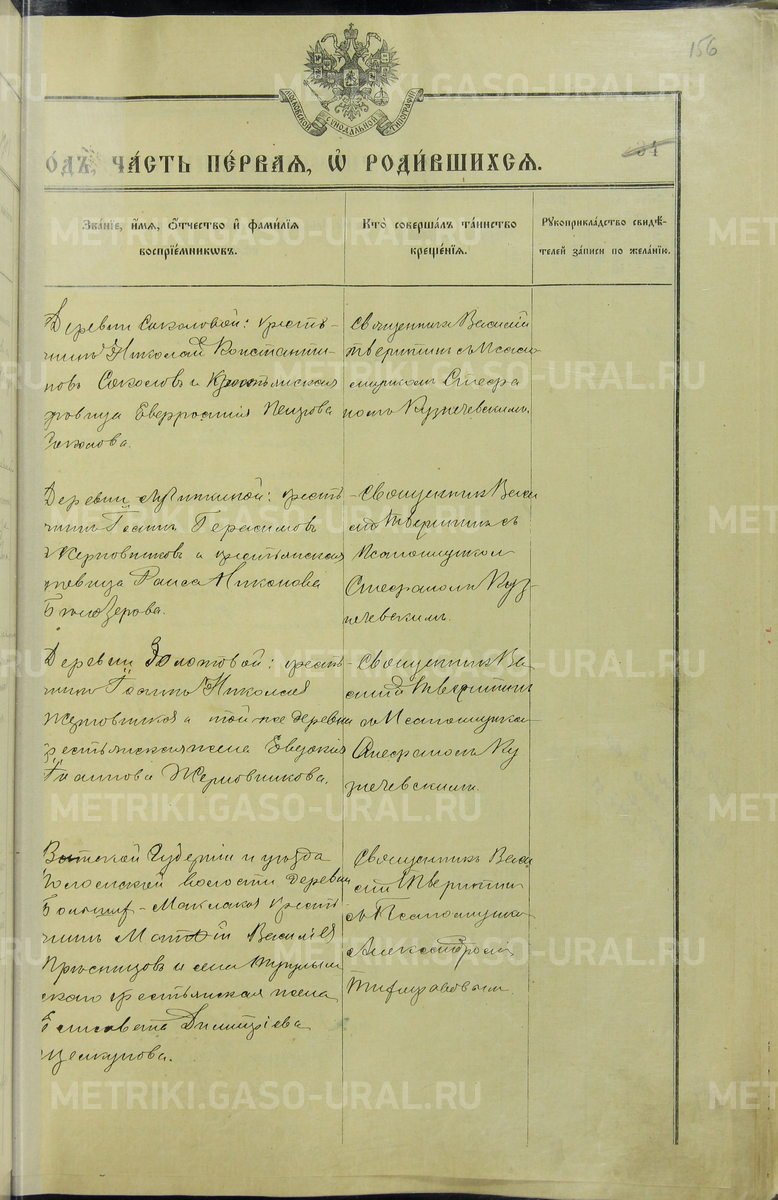 156
МОСКОВСКОЙ СѴНОДАЛЬНОЙ ТИПОГРАФІИ
О́ДЪ, ЧА́СТЬ ПЕ́РВАЯ, Ѡ҆ РОДИ́ВШИХСЯ.
34
Зва́ніе, и҆́мя, ѻ҆́тчество и҆ фами́лія
воспріе́мниковъ.
Кто̀ соверша́лъ та́инство
креще́нія.
Рꙋкоприкла́дство свидѣ́-
телей за́писи по жела́нію.
Деревни Соколовой: кресть-
янинъ Николай Константи-
новъ Соколовъ и крестьянская
девица Евфросинія Петрова
Соколова.
Священникъ Василій
Тверитинъ съ Псало-
мщикомъ Стефа
номъ Кузнечевскимъ.
Деревни: кресть
янинъ Іоаннъ Герасимовъ
Жерновниковъ и крестьянская
девица Раиса Никонова
Бѣлозерова.
Священникъ Васи
лій Тверитинъ съ
Псаломщикомъ
Стефаномъ Куз-
нечевскимъ.
Деревни Золотовой: кресть-
янинъ Іоаннъ Николаевъ
Жерновниковъ и той же деревни
крестьянская жена Евдокія
Іоаннова Жерновникова.
Священникъ Ва
силій Тверитинъ
съ Псаломщико
Стефаномъ Куз
нечевскимъ.
Вятской Губерніи и уѣзда
волости деревни
Больше-Маклаковъ кресть
янинъ Матѳій Васильевъ
Прѣсницовъ и села
скаго крестьянская жена
Елисавета Димитріева
Щелкунова.
Священникъ Васи
лій Тверитинъ
съ Псаломщико
Александромъ
METRIKI.GASO-URAL.RU